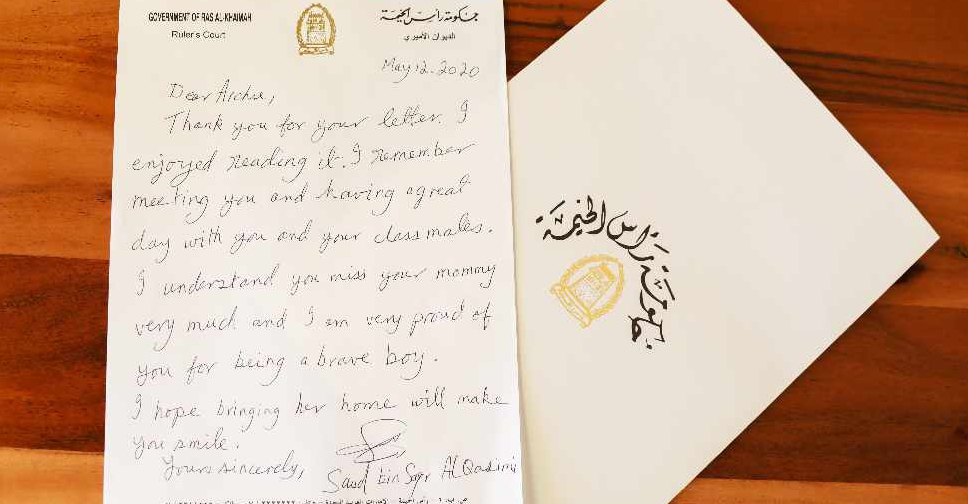 GOVERNMENT OF RAS AL-KHAIMAH
Ruler's Court
حكومة رأس الخيمة
الديوان الأميري
May 12. 2020
Dear Archie,
Thank you for your letter. I
enjoyed reading it. I remember
meeting you and having a great
day with you and your classmates.
I understand you miss your mommy
very much and I am very proud of
you for being a brave boy.
I hope bringing her home will make
you smile.
Yours sincerely,
Saud bin Saqr Al Qasimi
حكومة رأس الخيمة